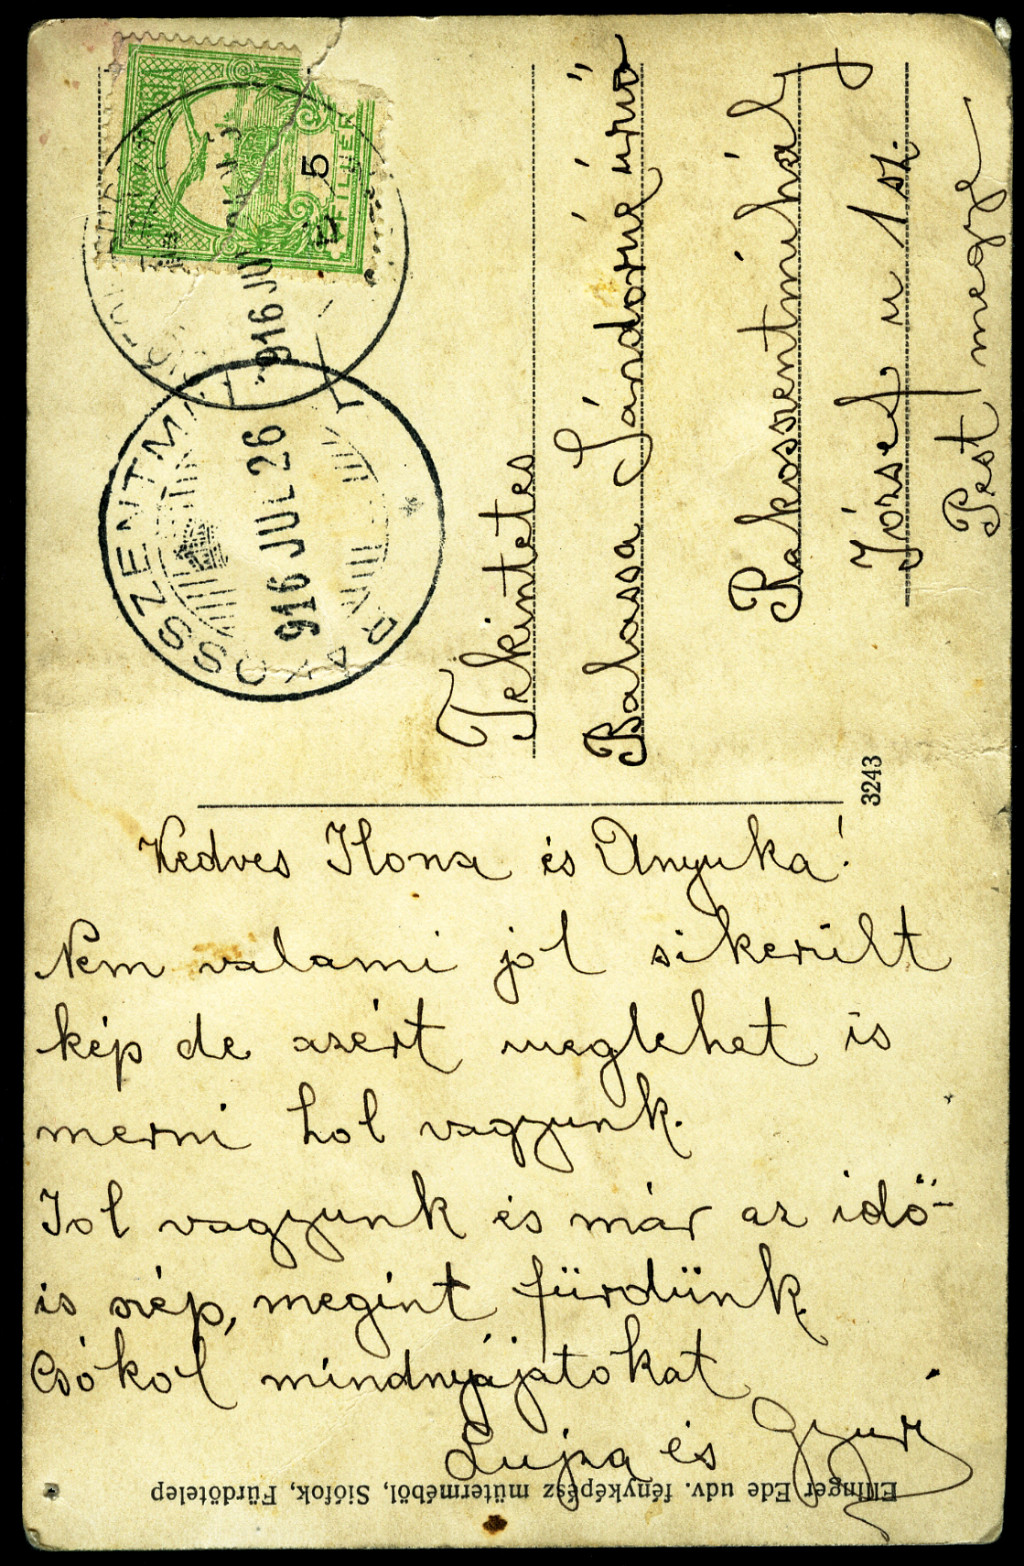 MAGYAR KIR. POSTA
5
FILLÉR
916 JUL
RÁKOSSZENTMI
916 JUL 26
Tekintetes
Balassa Sándorné úrnő
Rakosszentmihály
József u 1 sz.
Pest megye
3243
Kedves Ilona és Anyuka!
Nem valami jól sikerült
kép de azért meglehet is
merni hol vagyunk.
Jol vagyunk és már az idő-
is szép, megint fürdünk.
Csókol mindnyájatokat
Lujza és Gyuri
Ellinger Ede udv. fényképész műterméből, Siófok, Fürdőtelep